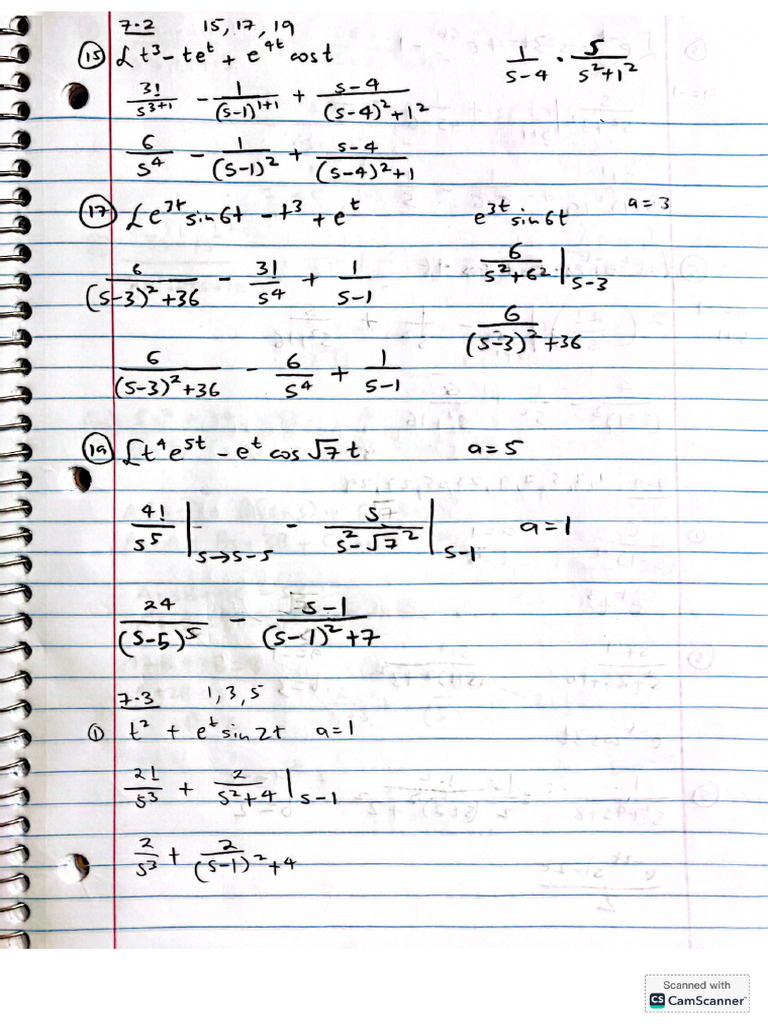 7.2 15, 17, 19
⑮ ℒ t³ - te^t + e^{4t} cos t
1/(s-4) · s/(s²+1²)
3!/s^{3+1} - 1/(s-1)^{1+1} + (s-4)/((s-4)²+1²)
6/s⁴ - 1/(s-1)² + (s-4)/((s-4)²+1)
⑰ ℒ e^{3t} sin 6t - t³ + e^t
e^{3t} sin 6t a = 3
6/(s²+6²) | s-3
6/((s-3)²+36) - 3!/s⁴ + 1/(s-1)
6/((s-3)²+36)
6/((s-3)²+36) - 6/s⁴ + 1/(s-1)
⑲ ℒ t⁴e^{5t} - e^t cos √7 t a = 5
4!/s⁵ | s→s-5 - s/(s²-√7²) | s-1 a = 1
24/(s-5)⁵ - (s-1)/((s-1)²+7)
7.3 1, 3, 5
① t² + e^t sin 2t a = 1
2!/s³ + 2/(s²+4) | s-1
2/s³ + 2/((s-1)²+4)
Scanned with
CS CamScanner